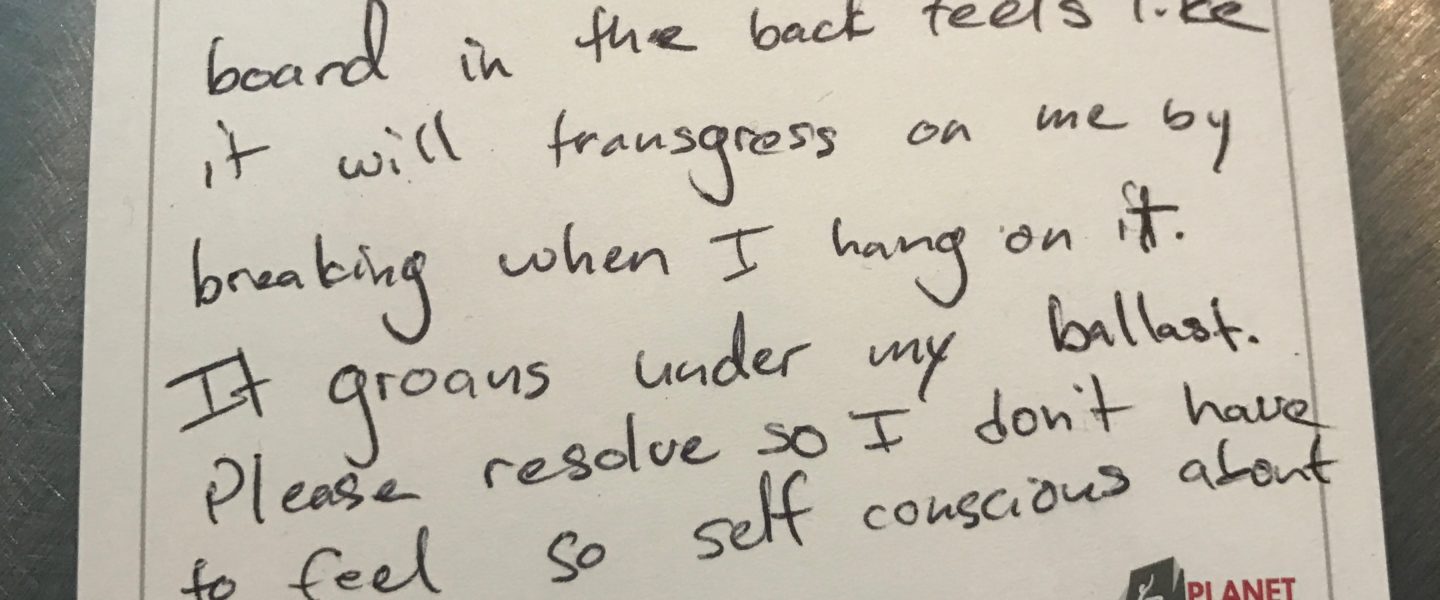 board in the back feels like
it will transgress on me by
breaking when I hang on it.
It groans under my ballast.
Please resolve so I don't have
to feel so self conscious about
PLANET